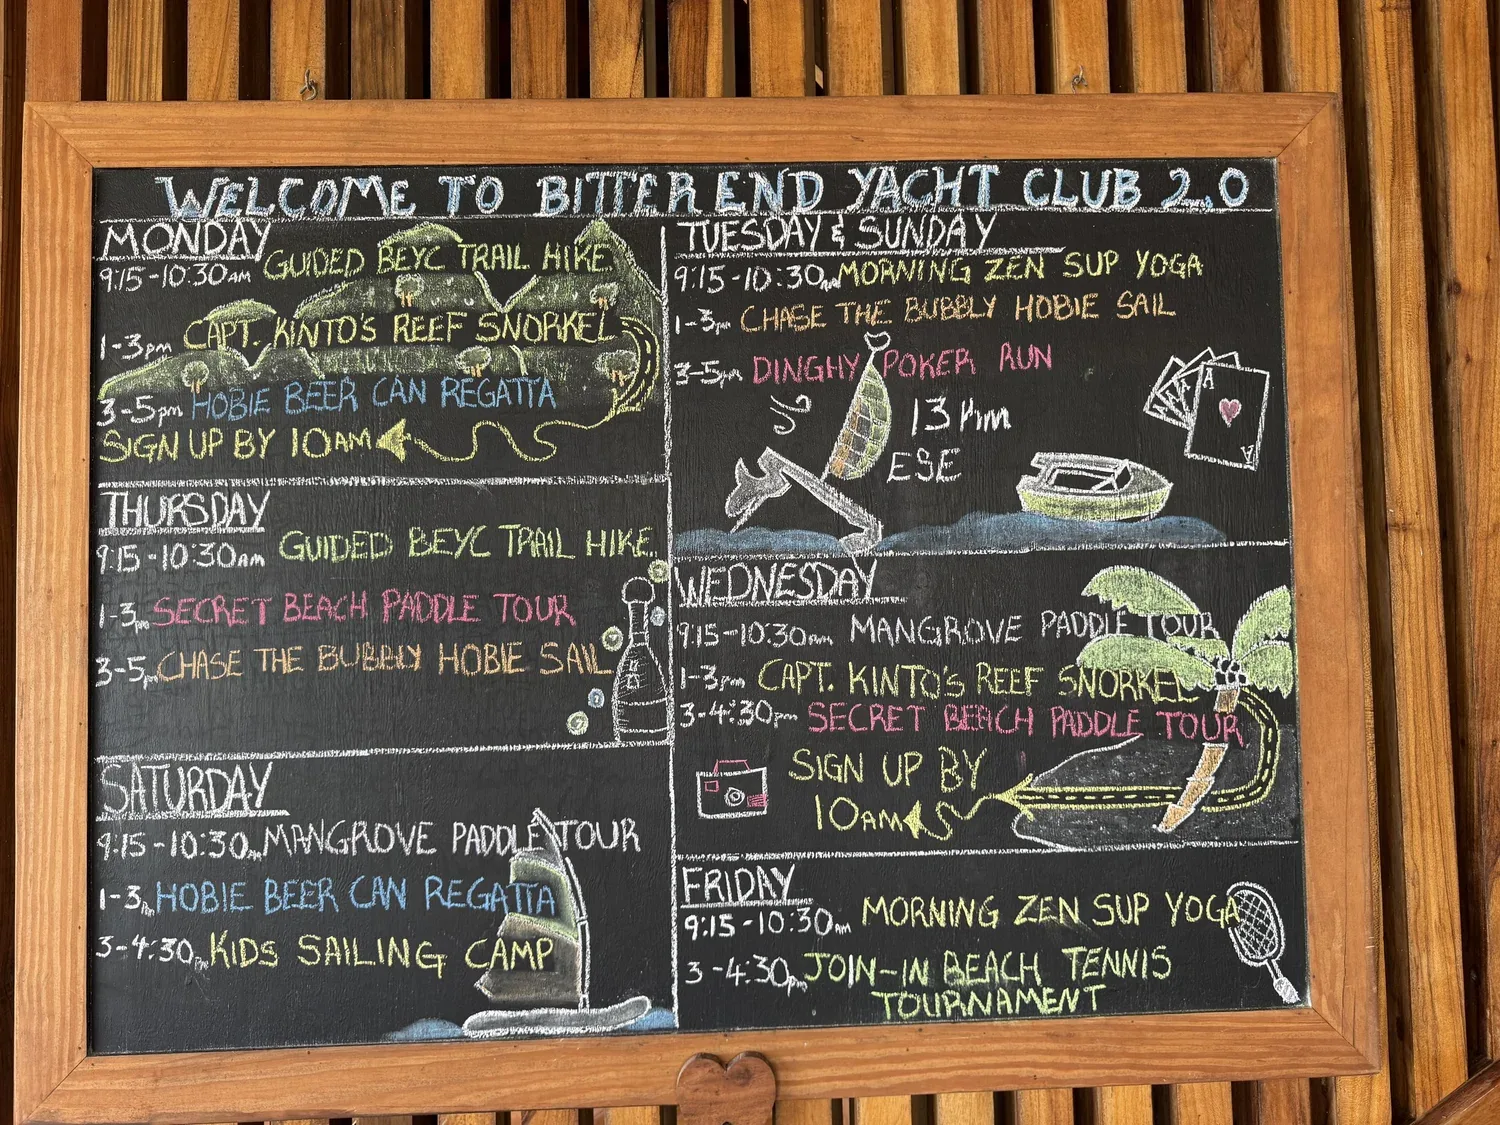 WELCOME TO BITTER END YACHT CLUB 2.0
MONDAY
9:15-10:30AM GUIDED BEYC TRAIL HIKE
1-3pm CAPT. KINTO'S REEF SNORKEL
3-5pm HOBIE BEER CAN REGATTA
SIGN UP BY 10AM
THURSDAY
9:15-10:30am GUIDED BEYC TRAIL HIKE
1-3pm SECRET BEACH PADDLE TOUR
3-5pm CHASE THE BUBBLY HOBIE SAIL
SATURDAY
9:15-10:30am MANGROVE PADDLE TOUR
1-3pm HOBIE BEER CAN REGATTA
3-4:30pm KIDS SAILING CAMP
TUESDAY & SUNDAY
9:15-10:30AM MORNING ZEN SUP YOGA
1-3pm CHASE THE BUBBLY HOBIE SAIL
3-5pm DINGHY POKER RUN
13
ESE
A
A
A
WEDNESDAY
9:15-10:30am MANGROVE PADDLE TOUR
1-3pm CAPT. KINTO'S REEF SNORKEL
3-4:30pm SECRET BEACH PADDLE TOUR
SIGN UP BY
10AM
FRIDAY
9:15-10:30am MORNING ZEN SUP YOGA
3-4:30pm JOIN-IN BEACH TENNIS
TOURNAMENT